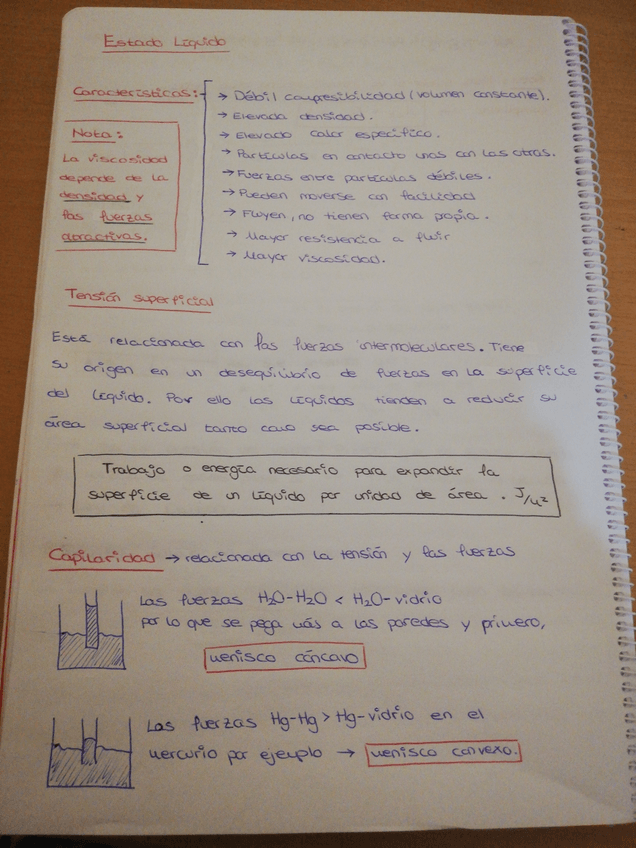 Estado Líquido
Características:
→ Débil compresibilidad (volumen constante).
→ Elevada densidad.
→ Elevado calor específico.
→ Partículas en contacto unas con las otras.
→ Fuerzas entre partículas débiles.
→ Pueden moverse con facilidad
→ Fluyen, no tienen forma propia.
→ Mayor resistencia a fluir
→ Mayor viscosidad.
Nota:
La viscosidad
depende de la
densidad y
las fuerzas
atractivas.
Tensión superficial
Está relacionada con las fuerzas intermoleculares. Tiene
su origen en un desequilibrio de fuerzas en la superficie
del líquido. Por ello los líquidos tienden a reducir su
área superficial tanto como sea posible.
Trabajo o energía necesario para expandir la
superficie de un líquido por unidad de área. J/m²
Capilaridad → relacionada con la tensión y las fuerzas
Las fuerzas H₂O-H₂O < H₂O-vidrio
por lo que se pega más a las paredes y primero,
menisco cóncavo
Las fuerzas Hg-Hg > Hg-vidrio en el
mercurio por ejemplo → menisco convexo.